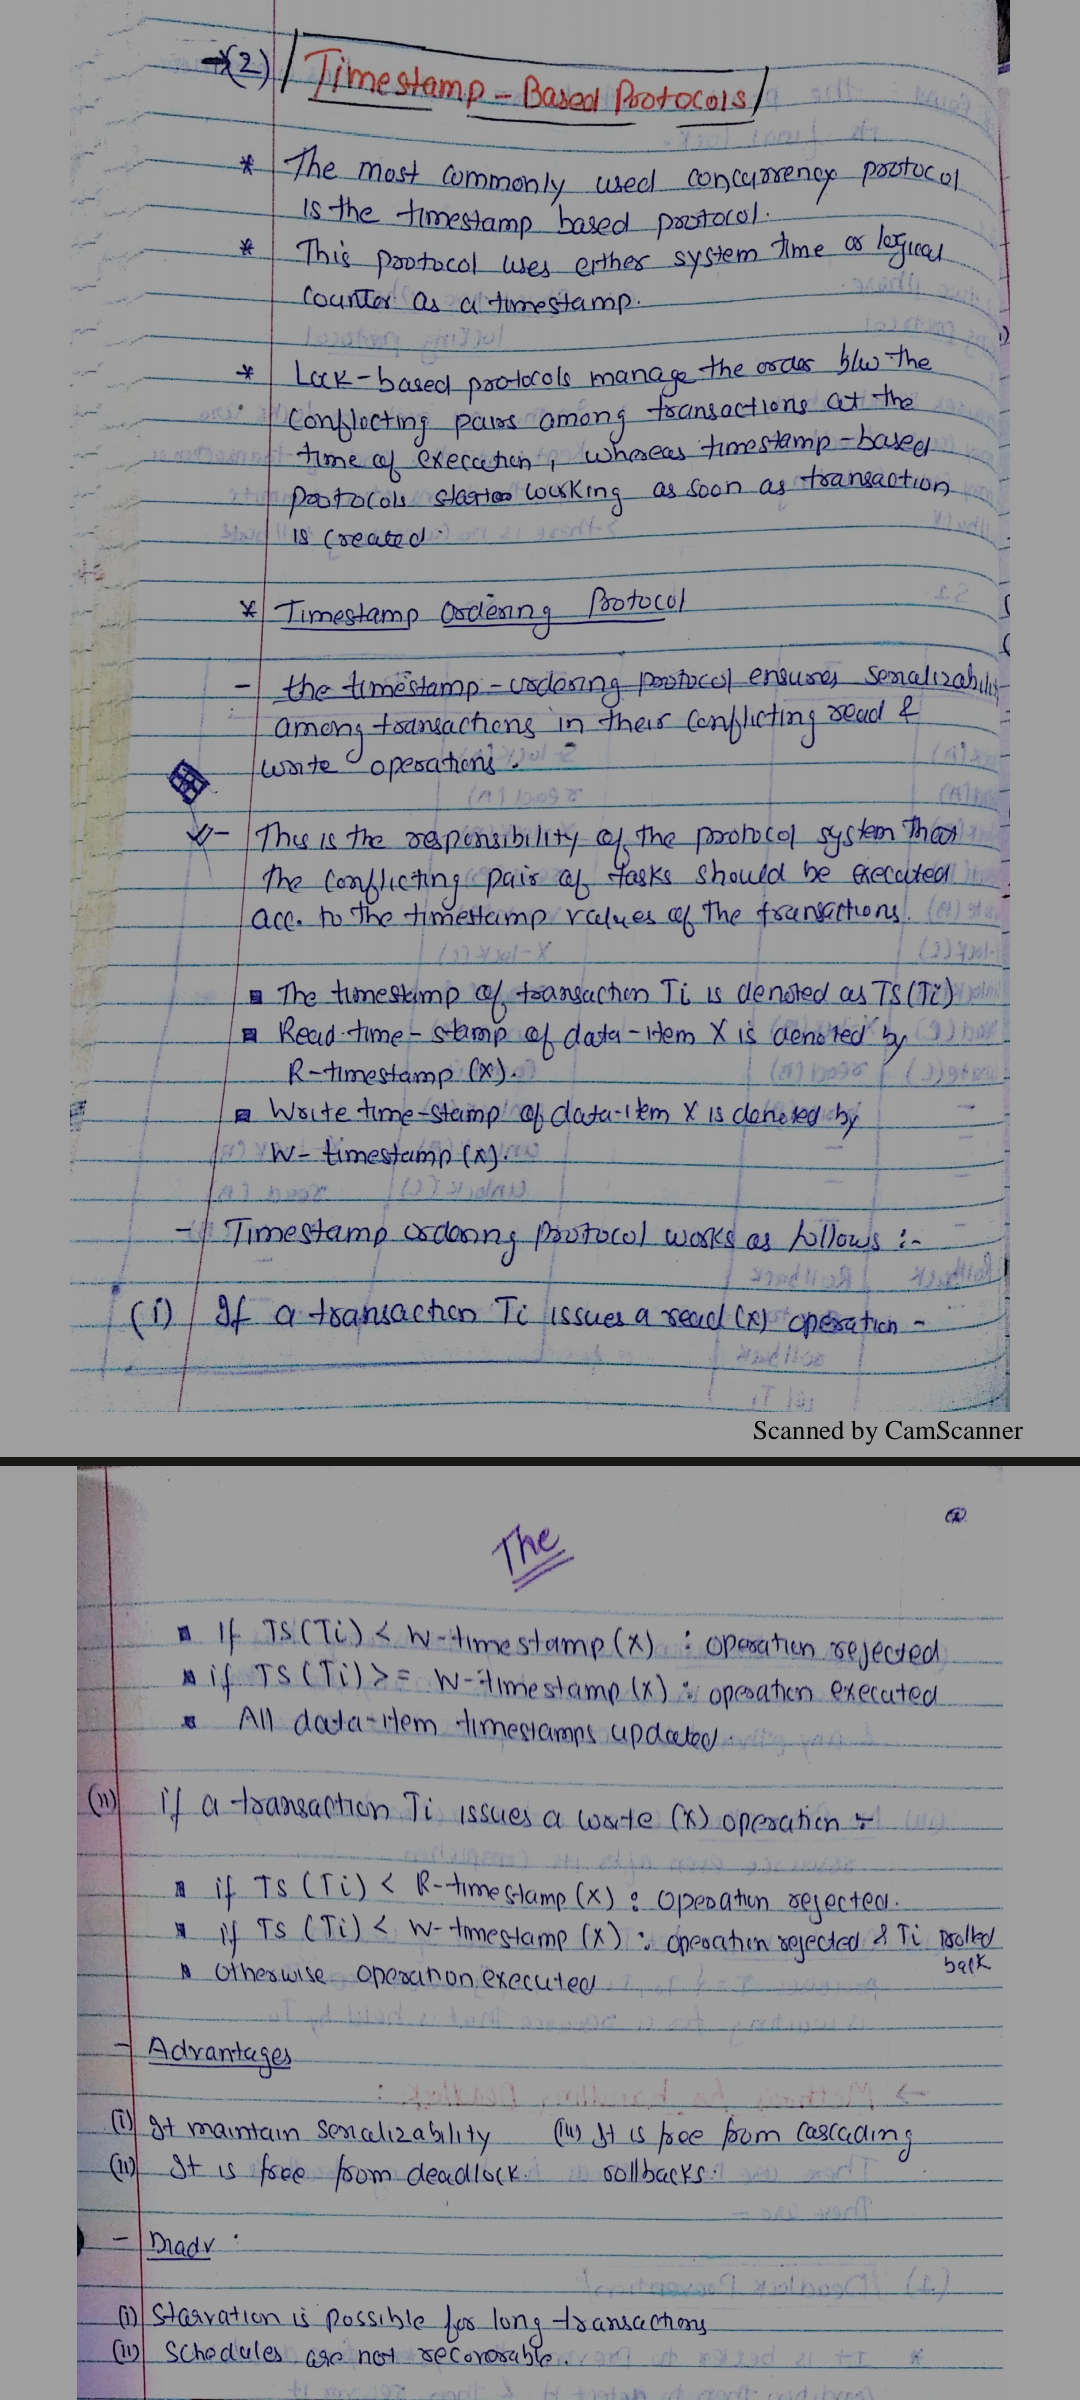 →(2) Timestamp - Based Protocols
* The most commonly used concurrency protocol
is the timestamp based protocol.
* This protocol uses either system time or logical
counter as a timestamp.
* Lock-based protocols manage the order b/w the
conflicting pairs among transactions at the
time of execution, whereas timestamp-based
protocols start working as soon as transaction
is created
* Timestamp Ordering Protocol
- the timestamp-ordering protocol ensures serializability
among transactions in their conflicting read &
write operations.
- This is the responsibility of the protocol system that
the conflicting pair of tasks should be executed
acc. to the timestamp values of the transactions.
▪ The timestamp of transaction Ti is denoted as TS(Ti)
▪ Read time-stamp of data-item X is denoted by
R-timestamp (X).
▪ Write time-stamp of data-item X is denoted by
W-timestamp (X).
- Timestamp ordering protocol works as follows :-
(i) If a transaction Ti issues a read (X) operation -
Scanned by CamScanner
The
▪ If TS(Ti) < W-timestamp (X) : operation rejected
▪ if TS (Ti) >= W-timestamp (X) : operation executed
▪ All data-item timestamps updated.
(ii) if a transaction Ti issues a write (X) operation :-
▪ if TS (Ti) < R-timestamp (X) : Operation rejected.
▪ if TS (Ti) < W-timestamp (X) : operation rejected & Ti rolled
back
▪ Otherwise operation executed
- Advantages
(i) It maintain serializability (iii) It is free from cascading
(ii) It is free from deadlock. rollbacks.
- Disadv :
(i) Starvation is possible for long transactions
(ii) Schedules are not recoverable.